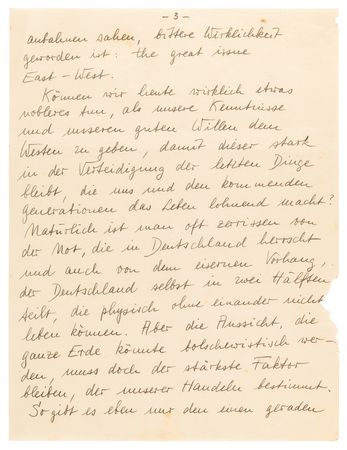 - 3 -
anbahnen sahen, bittere Wirklichkeit
geworden ist: the great issue
East - West.
Können wir heute wirklich etwas
nobleres tun, als unsere Kenntnisse
und unseren guten Willen dem
Westen zu geben, damit dieser stark
in der Verteidigung der letzten Dinge
bleibt, die uns und den kommenden
Generationen das Leben lohnend macht?
Natürlich ist man oft zerrissen von
der Not, die in Deutschland herrscht
und auch von dem eisernen Vorhang,
der Deutschland selbst in zwei Hälften
teilt, die physisch ohne einander nicht
leben können. Aber die Aussicht, die
ganze Erde könnte bolschewistisch wer-
den, muss doch der stärkste Faktor
bleiben, der unserer Handeln bestimmt.
So gibt es eben nur den einen geraden